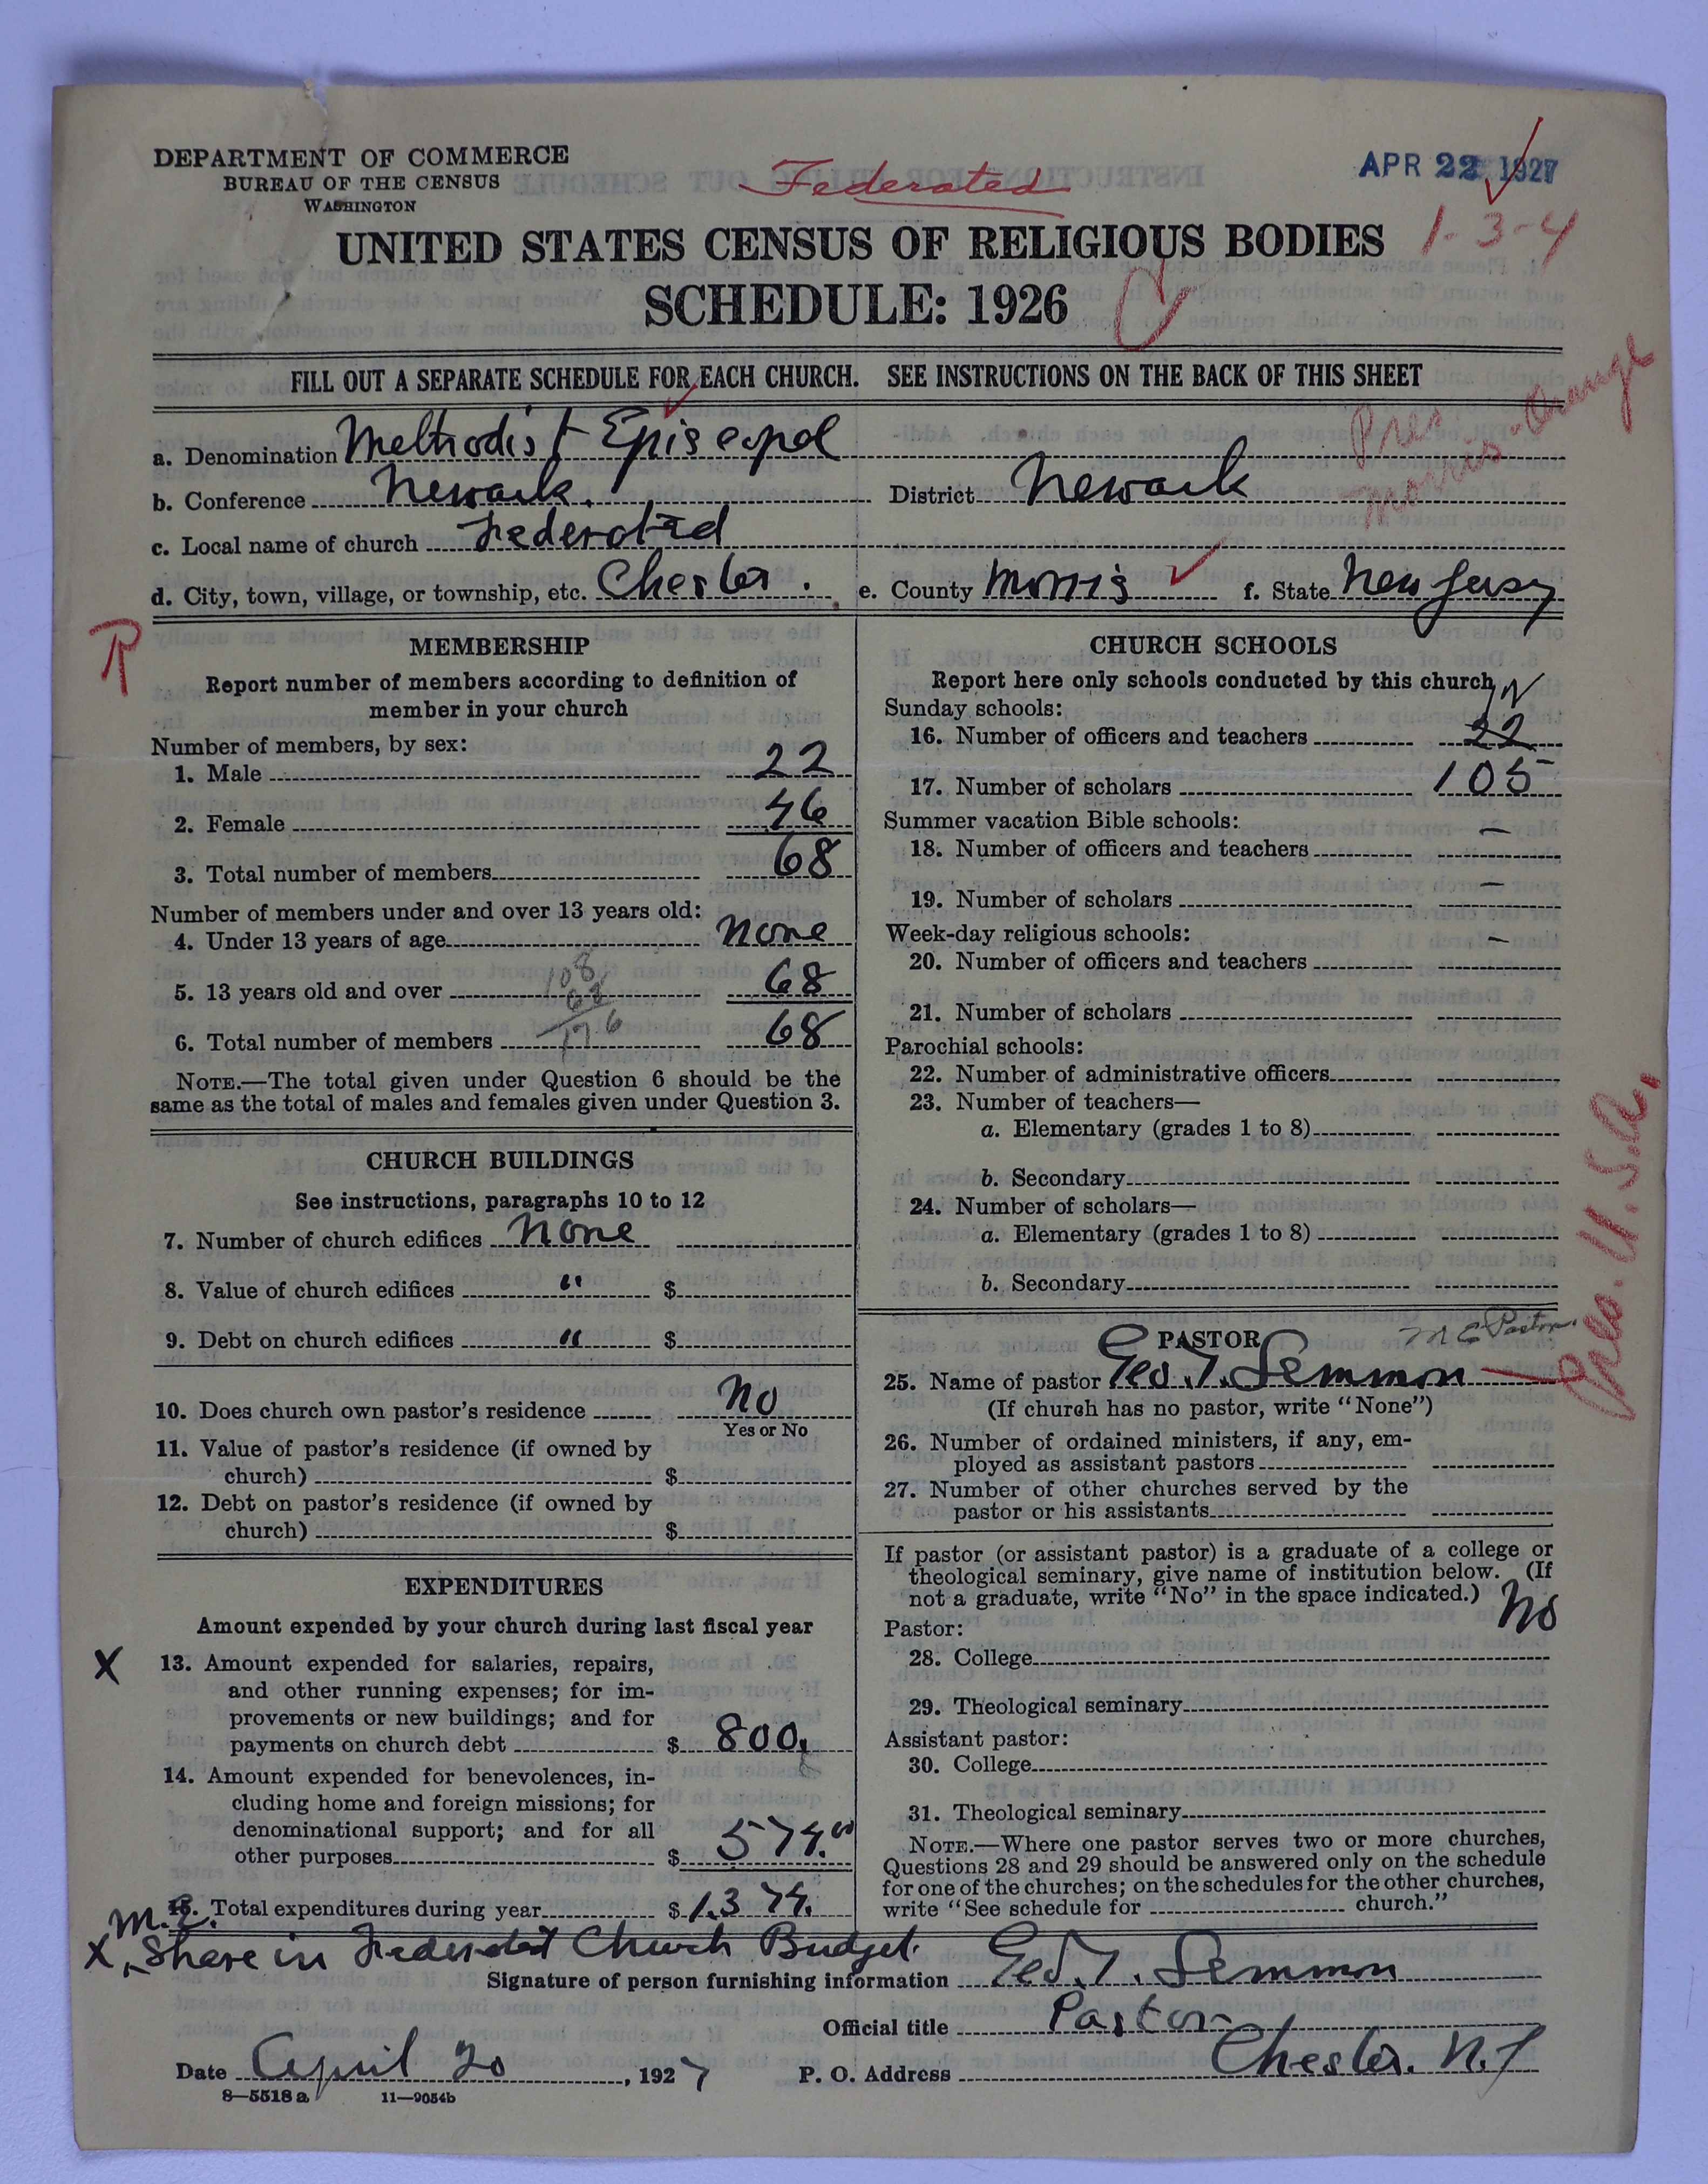 DEPARTMENT OF COMMERCE
BUREAU OF THE CENSUS
WASHINGTON
Federated
APR 22 1927
1-3-4
UNITED STATES CENSUS OF RELIGIOUS BODIES
SCHEDULE: 1926
FILL OUT A SEPARATE SCHEDULE FOR EACH CHURCH. SEE INSTRUCTIONS ON THE BACK OF THIS SHEET
Pres
Morris-Orange
a. Denomination Methodist Episcopal
b. Conference Newark. District Newark
c. Local name of church Federated
d. City, town, village, or township, etc. Chester. e. County Morris f. State New Jersy
R
MEMBERSHIP
Report number of members according to definition of
member in your church
Number of members, by sex:
1. Male 22
2. Female 46
3. Total number of members 68
Number of members under and over 13 years old:
4. Under 13 years of age none
5. 13 years old and over 68
6. Total number of members 68
108
68
176
NOTE.—The total given under Question 6 should be the
same as the total of males and females given under Question 3.
CHURCH BUILDINGS
See instructions, paragraphs 10 to 12
7. Number of church edifices none
8. Value of church edifices " $
9. Debt on church edifices " $
10. Does church own pastor's residence no
Yes or No
11. Value of pastor's residence (if owned by
church) $
12. Debt on pastor's residence (if owned by
church) $
EXPENDITURES
Amount expended by your church during last fiscal year
X 13. Amount expended for salaries, repairs,
and other running expenses; for im-
provements or new buildings; and for
payments on church debt $ 800.
14. Amount expended for benevolences, in-
cluding home and foreign missions; for
denominational support; and for all
other purposes $ 574.00
15. Total expenditures during year $ 1374.
CHURCH SCHOOLS
Report here only schools conducted by this church
Sunday schools:
16. Number of officers and teachers 22
17. Number of scholars 105
Summer vacation Bible schools:
18. Number of officers and teachers —
19. Number of scholars —
Week-day religious schools:
20. Number of officers and teachers —
21. Number of scholars
Parochial schools:
22. Number of administrative officers
23. Number of teachers—
a. Elementary (grades 1 to 8)
b. Secondary
24. Number of scholars—
a. Elementary (grades 1 to 8)
b. Secondary
Pres. U.S.A.
PASTOR
M E Pastor.
25. Name of pastor Geo. T. Lemmon
(If church has no pastor, write "None")
26. Number of ordained ministers, if any, em-
ployed as assistant pastors
27. Number of other churches served by the
pastor or his assistants
If pastor (or assistant pastor) is a graduate of a college or
theological seminary, give name of institution below. (If
not a graduate, write "No" in the space indicated.) No
Pastor:
28. College
29. Theological seminary
Assistant pastor:
30. College
31. Theological seminary
NOTE.—Where one pastor serves two or more churches,
Questions 28 and 29 should be answered only on the schedule
for one of the churches; on the schedules for the other churches,
write "See schedule for church."
M.E.
X Share in Federated Church Budget.
Signature of person furnishing information Geo. T. Lemmon
Official title Pastor
Date April 20, 1927 P. O. Address Chester. N.J
8—5518 a 11—9054b